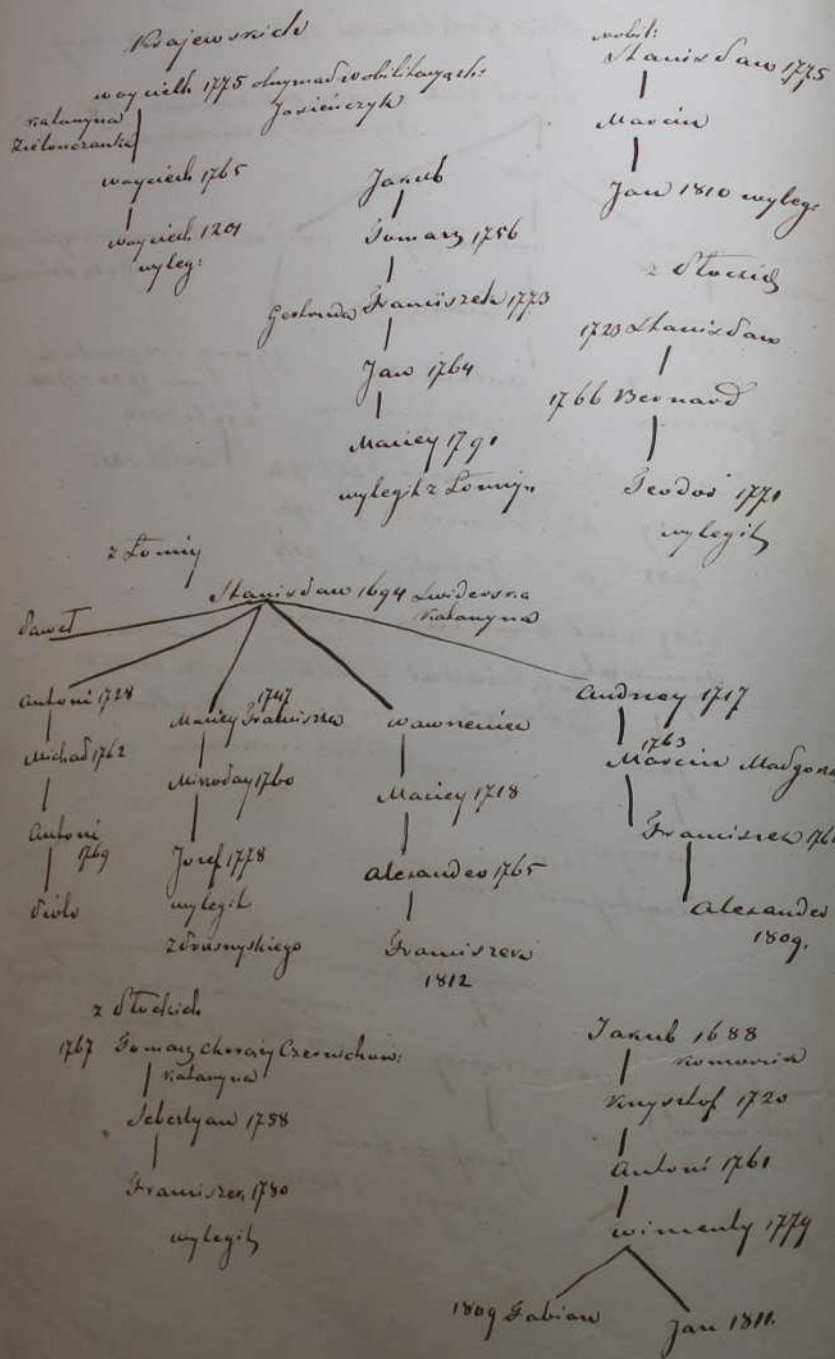 Krajewskich
woyciech 1775 otrzymał nobilitacyach:
Jasieńczyk
Katarzyna
Zielonczanka
woyciech 1765
woyciech 1201
wyleg:
Jakub
Tomasz 1756
Franciszek 1773
Jan 1764
Maciey 1791
wylegit z Łomży
nobil:
Stanisław 1775
Marcin
Jan 1810 wyleg:
z Płockich
1723 Stanisław
1766 Bernard
Teodor 1771
wylegit
z Łomży
Stanisław 1694 Swiderska
Katarzyna
Paweł
Antoni 1728
Michał 1762
Antoni
1769
Piotr
1747
Maciey Franciszek
Mikołay 1760
Jozef 1778
wylegit
z Prasnyskiego
wawrzeniec
Maciey 1718
Alexander 1765
Franciszek
1812
Andrzey 1717
1763
Marcin Małgorza
Franciszek 176
Alexander
1809.
z Płockich
1767 Tomasz Chorąży Czernichow:
Katarzyna
Sebestyan 1758
Franciszek 1780
wylegit
Jakub 1688
Komornik
Krzysztof 1720
Antoni 1761
wincenty 1779
1809 Fabian
Jan 1811.